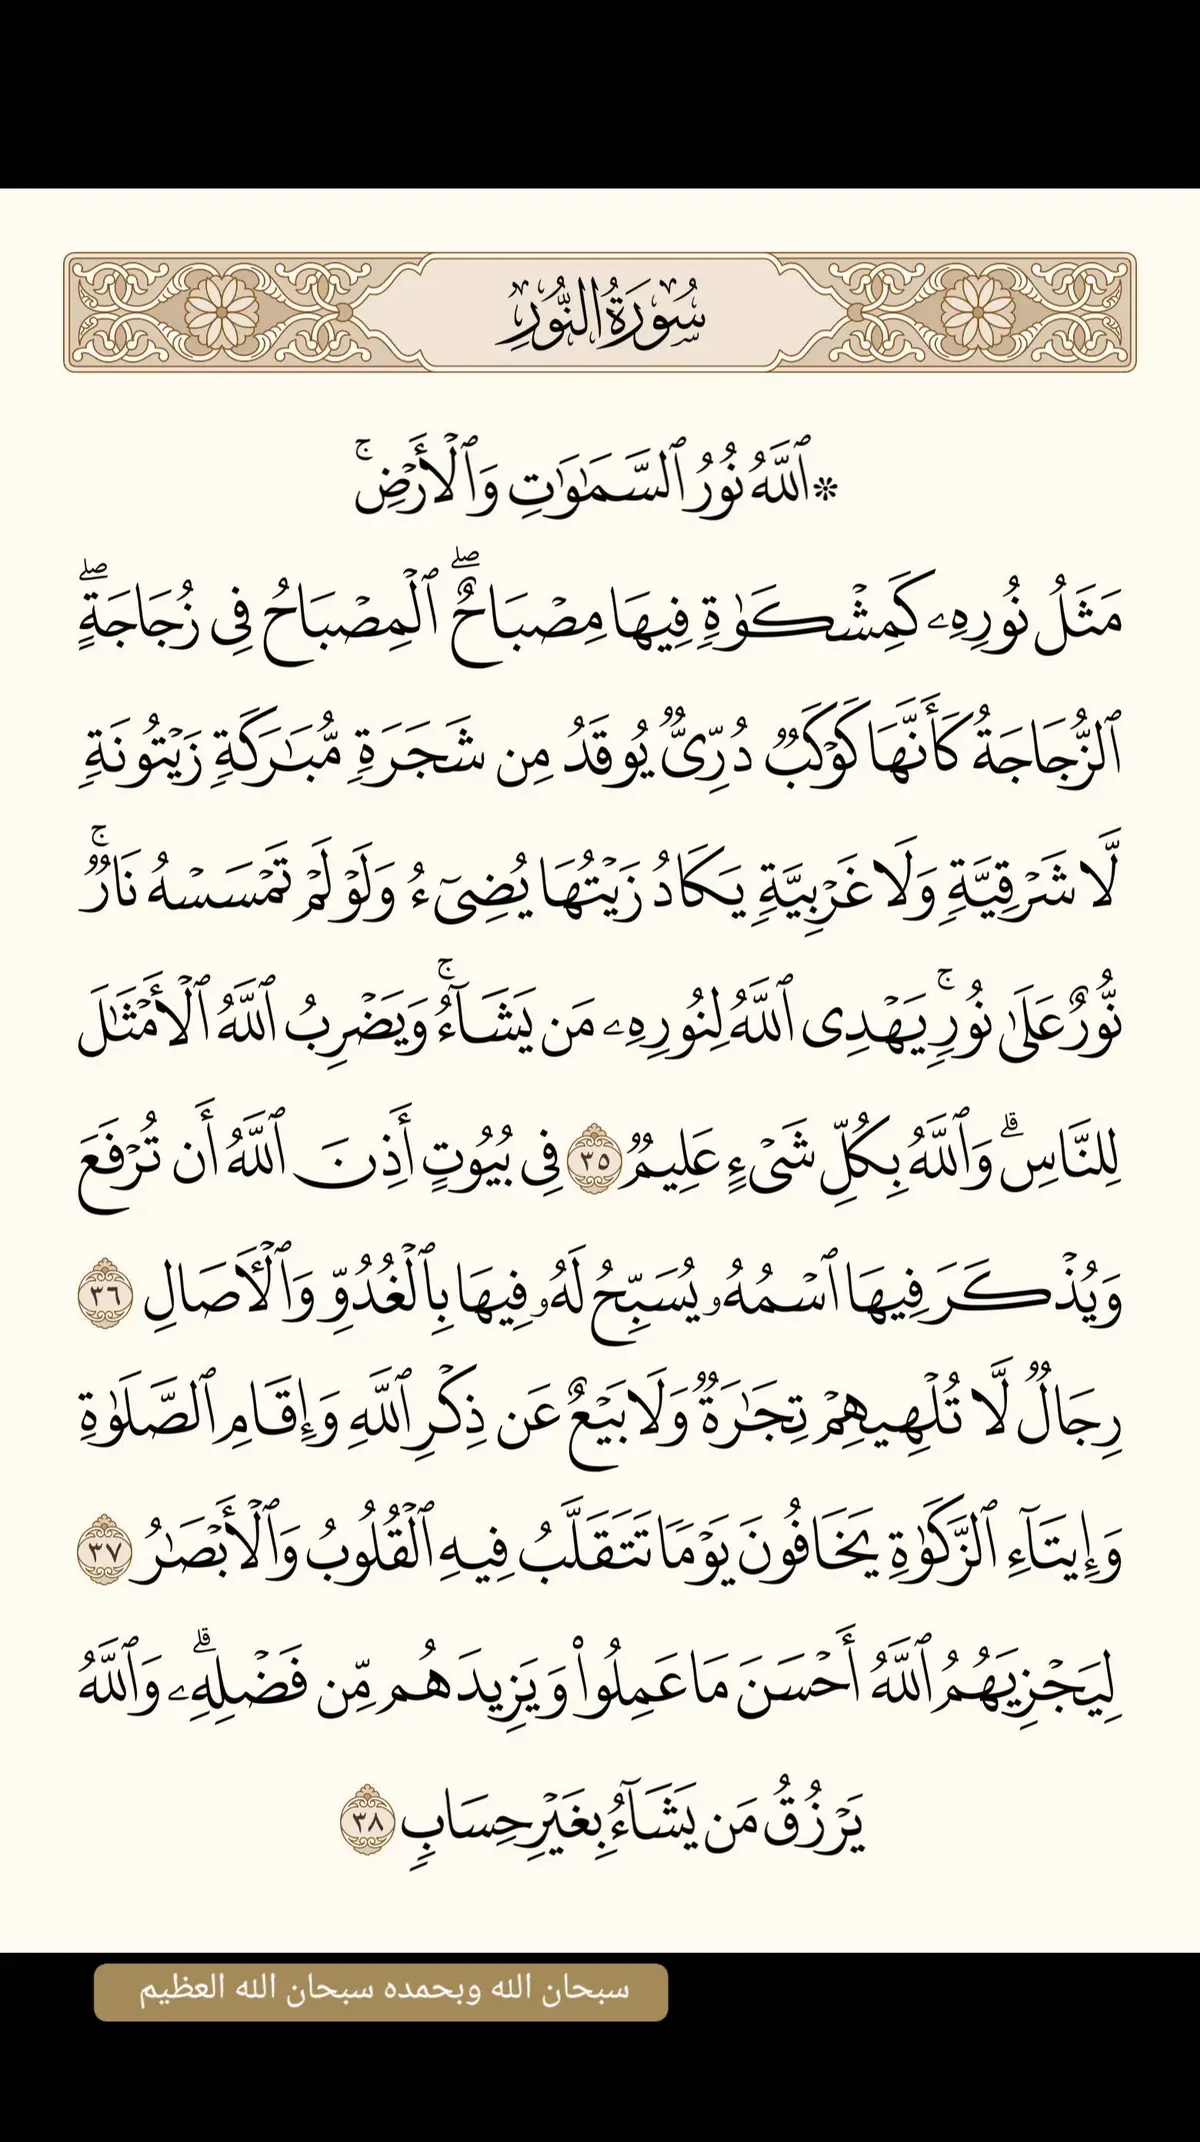 سُورَةُ النُّورِ
۞ ٱللَّهُ نُورُ ٱلسَّمَٰوَٰتِ وَٱلْأَرْضِۚ
مَثَلُ نُورِهِۦ كَمِشْكَوٰةٍ فِيهَا مِصْبَاحٌۖ ٱلْمِصْبَاحُ فِى زُجَاجَةٍۖ
ٱلزُّجَاجَةُ كَأَنَّهَا كَوْكَبٌ دُرِّىٌّ يُوقَدُ مِن شَجَرَةٍ مُّبَٰرَكَةٍ زَيْتُونَةٍ
لَّا شَرْقِيَّةٍ وَلَا غَرْبِيَّةٍ يَكَادُ زَيْتُهَا يُضِىٓءُ وَلَوْ لَمْ تَمْسَسْهُ نَارٌۚ
نُّورٌ عَلَىٰ نُورٍۚ يَهْدِى ٱللَّهُ لِنُورِهِۦ مَن يَشَآءُۚ وَيَضْرِبُ ٱللَّهُ ٱلْأَمْثَٰلَ
لِلنَّاسِۗ وَٱللَّهُ بِكُلِّ شَىْءٍ عَلِيمٌ ٣٥ فِى بُيُوتٍ أَذِنَ ٱللَّهُ أَن تُرْفَعَ
وَيُذْكَرَ فِيهَا ٱسْمُهُۥ يُسَبِّحُ لَهُۥ فِيهَا بِٱلْغُدُوِّ وَٱلْءَاصَالِ ٣٦
رِجَالٌ لَّا تُلْهِيهِمْ تِجَٰرَةٌ وَلَا بَيْعٌ عَن ذِكْرِ ٱللَّهِ وَإِقَامِ ٱلصَّلَوٰةِ
وَإِيتَآءِ ٱلزَّكَوٰةِ يَخَافُونَ يَوْمًا تَتَقَلَّبُ فِيهِ ٱلْقُلُوبُ وَٱلْأَبْصَٰرُ ٣٧
لِيَجْزِيَهُمُ ٱللَّهُ أَحْسَنَ مَا عَمِلُوا۟ وَيَزِيدَهُم مِّن فَضْلِهِۦۗ وَٱللَّهُ
يَرْزُقُ مَن يَشَآءُ بِغَيْرِ حِسَابٍ ٣٨
سبحان الله وبحمده سبحان الله العظيم